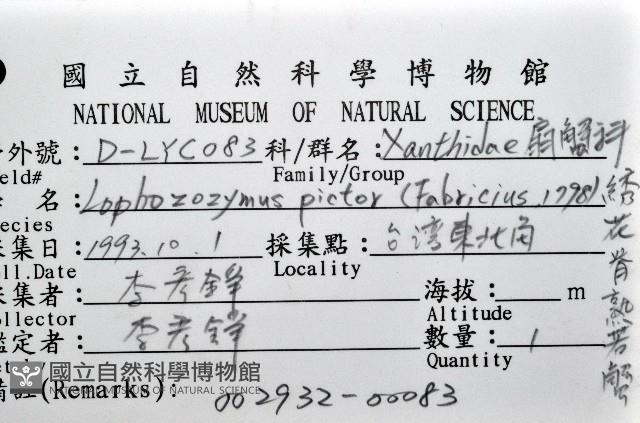 國立自然科學博物館
NATIONAL MUSEUM OF NATURAL SCIENCE
外號: D-LYC083 科/群名: Xanthidae 扇蟹科
eld# Family/Group
名: Lophozozymus pictor (Fabricius, 1798) 綉花脊熟若蟹
ecies
採集日: 1993.10.1 採集點: 台湾東北角
ll.Date Locality
採集者: 李彥錚 海拔: m
ollector Altitude
鑑定者: 李彥錚 數量: 1
Quantity
國立自然科學博物館
NATIONAL MUSEUM OF NATURAL SCIENCE
備註(Remarks): 002932-00083